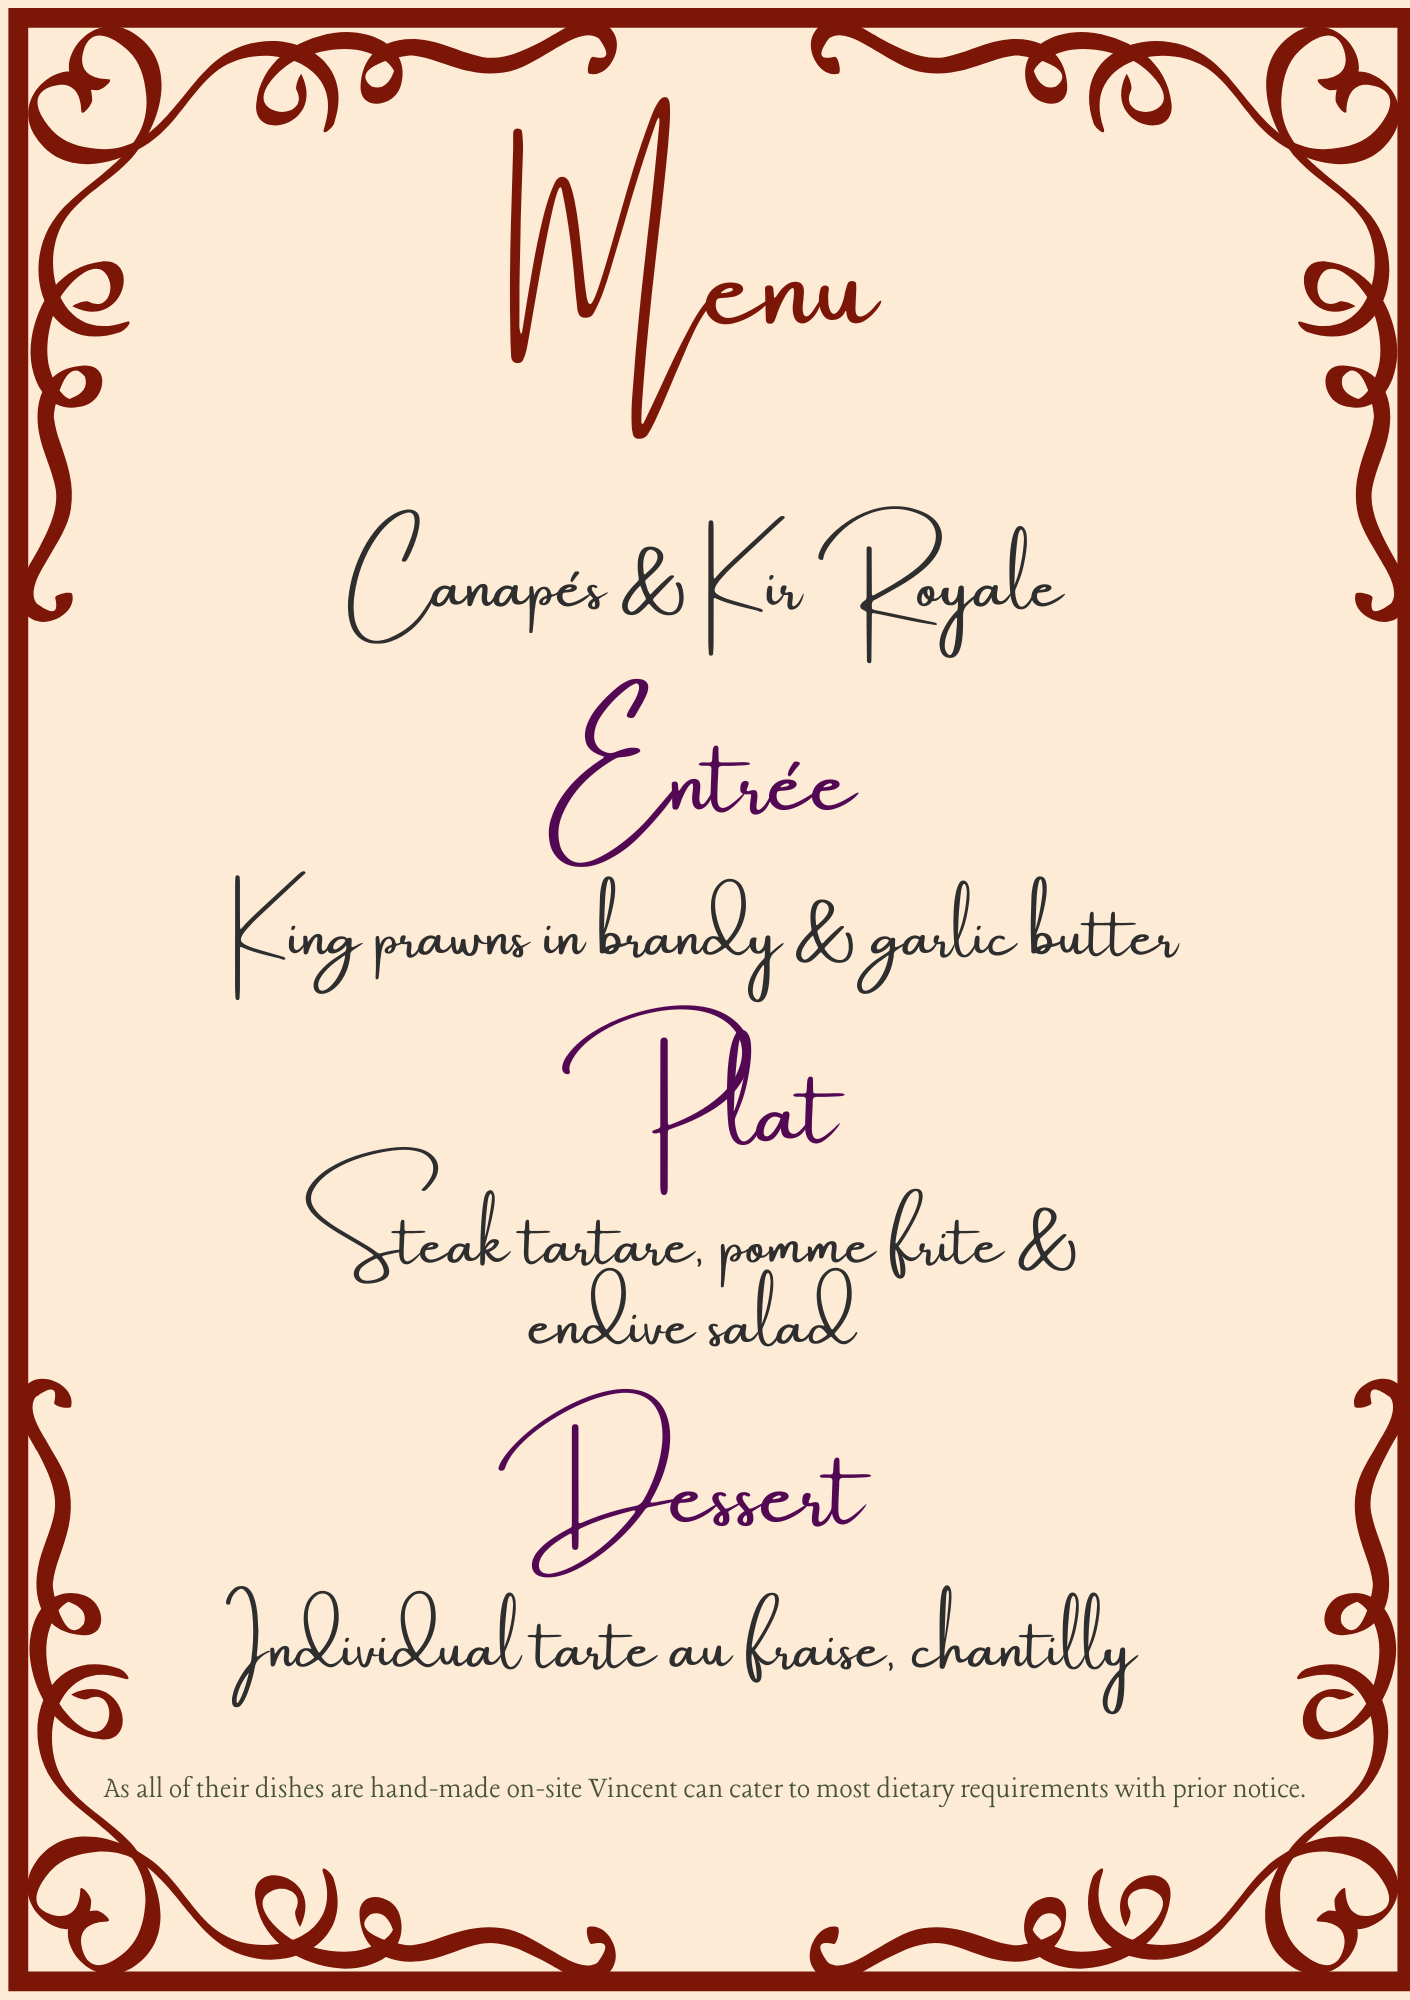 Menu
Canapés & Kir Royale
Entrée
King prawns in brandy & garlic butter
Plat
Steak tartare, pomme frite &
endive salad
Dessert
Individual tarte au fraise, chantilly
As all of their dishes are hand-made on-site Vincent can cater to most dietary requirements with prior notice.